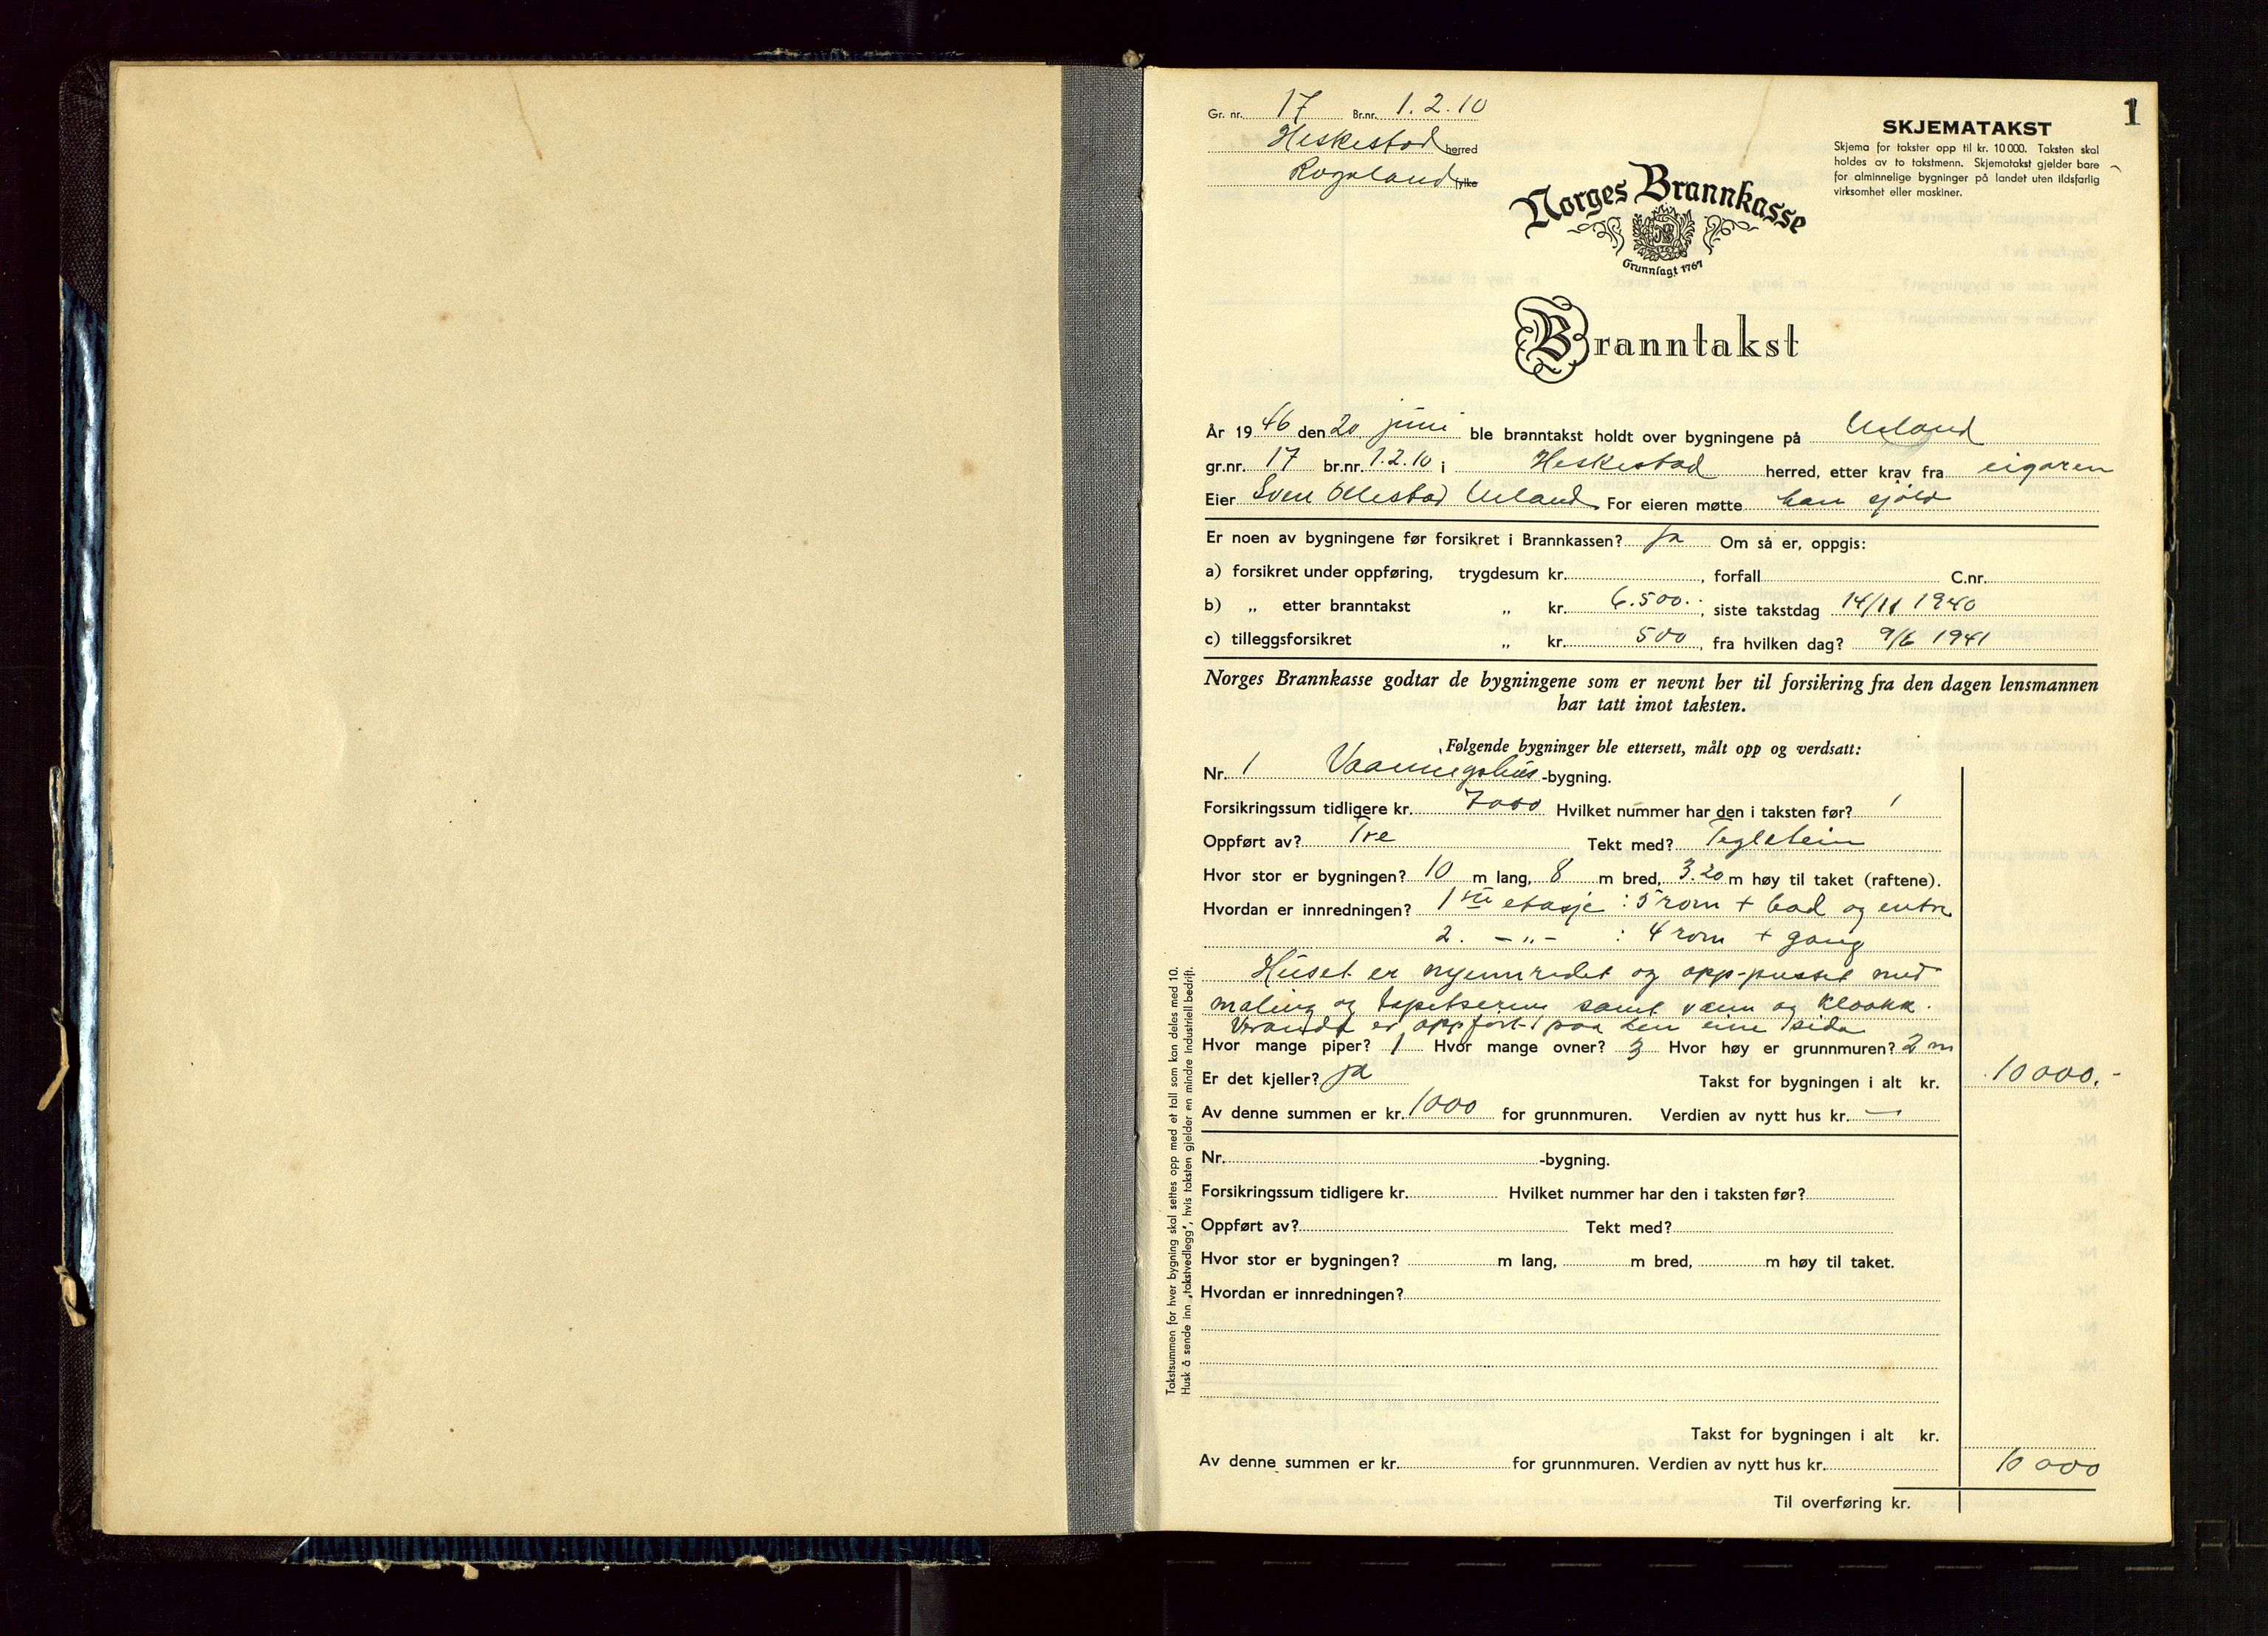 1
Gr. nr. 17 Br.nr. 1. 2. 10
Heskestad herred
Rogaland fylke
SKJEMATAKST
Skjema for takster opp til kr. 10 000. Taksten skal
holdes av to takstmenn. Skjematakst gjelder bare
for alminnelige bygninger på landet uten ildsfarlig
virksomhet eller maskiner.
Norges Brannkasse
Grunnlagt 1767
Branntakst
År 1946 den 20 juni ble branntakst holdt over bygningene på Ueland
gr.nr. 17 br.nr. 1.2.10 i Heskestad herred, etter krav fra eigaren
Eier Sven Ollestad Ueland For eieren møtte han sjølv
Er noen av bygningene før forsikret i Brannkassen? Ja Om så er, oppgis:
a) forsikret under oppføring, trygdesum kr. , forfall C.nr.
b) „ etter branntakst „ kr. 6.500.- , siste takstdag 14/11 1940
c) tilleggsforsikret „ kr. 500 , fra hvilken dag? 9/6 1941
Norges Brannkasse godtar de bygningene som er nevnt her til forsikring fra den dagen lensmannen
har tatt imot taksten.
Følgende bygninger ble ettersett, målt opp og verdsatt:
Nr. 1 Vaaningshus -bygning.
Forsikringssum tidligere kr. 7000 Hvilket nummer har den i taksten før? 1
Oppført av? Tre Tekt med? Teglstein
Hvor stor er bygningen? 10 m lang, 8 m bred, 3.20 m høy til taket (raftene).
Hvordan er innredningen? 1ste etasje : 5 rom + bad og entre
2. - „ - : 4 rom + gang
Huset er nyinnredet og opp-pusset med
maling og tapetsering samt vann og kloakk.
Veranda er oppført paa den eine sida
Hvor mange piper? 1 Hvor mange ovner? 3 Hvor høy er grunnmuren? 2 m
Er det kjeller? ja Takst for bygningen i alt kr. 10 000.-
Av denne summen er kr. 1000 for grunnmuren. Verdien av nytt hus kr. —
Nr. -bygning.
Forsikringssum tidligere kr. Hvilket nummer har den i taksten før?
Oppført av? Tekt med?
Hvor stor er bygningen? m lang, m bred, m høy til taket.
Hvordan er innredningen?
Takst for bygningen i alt kr.
Av denne summen er kr. for grunnmuren. Verdien av nytt hus kr. 10 000
Til overføring kr.
Takstsummen for hver bygning skal settes opp med et tall som kan deles med 10.
Husk å sende inn „takstvedlegg", hvis taksten gjelder en mindre industriell bedrift.